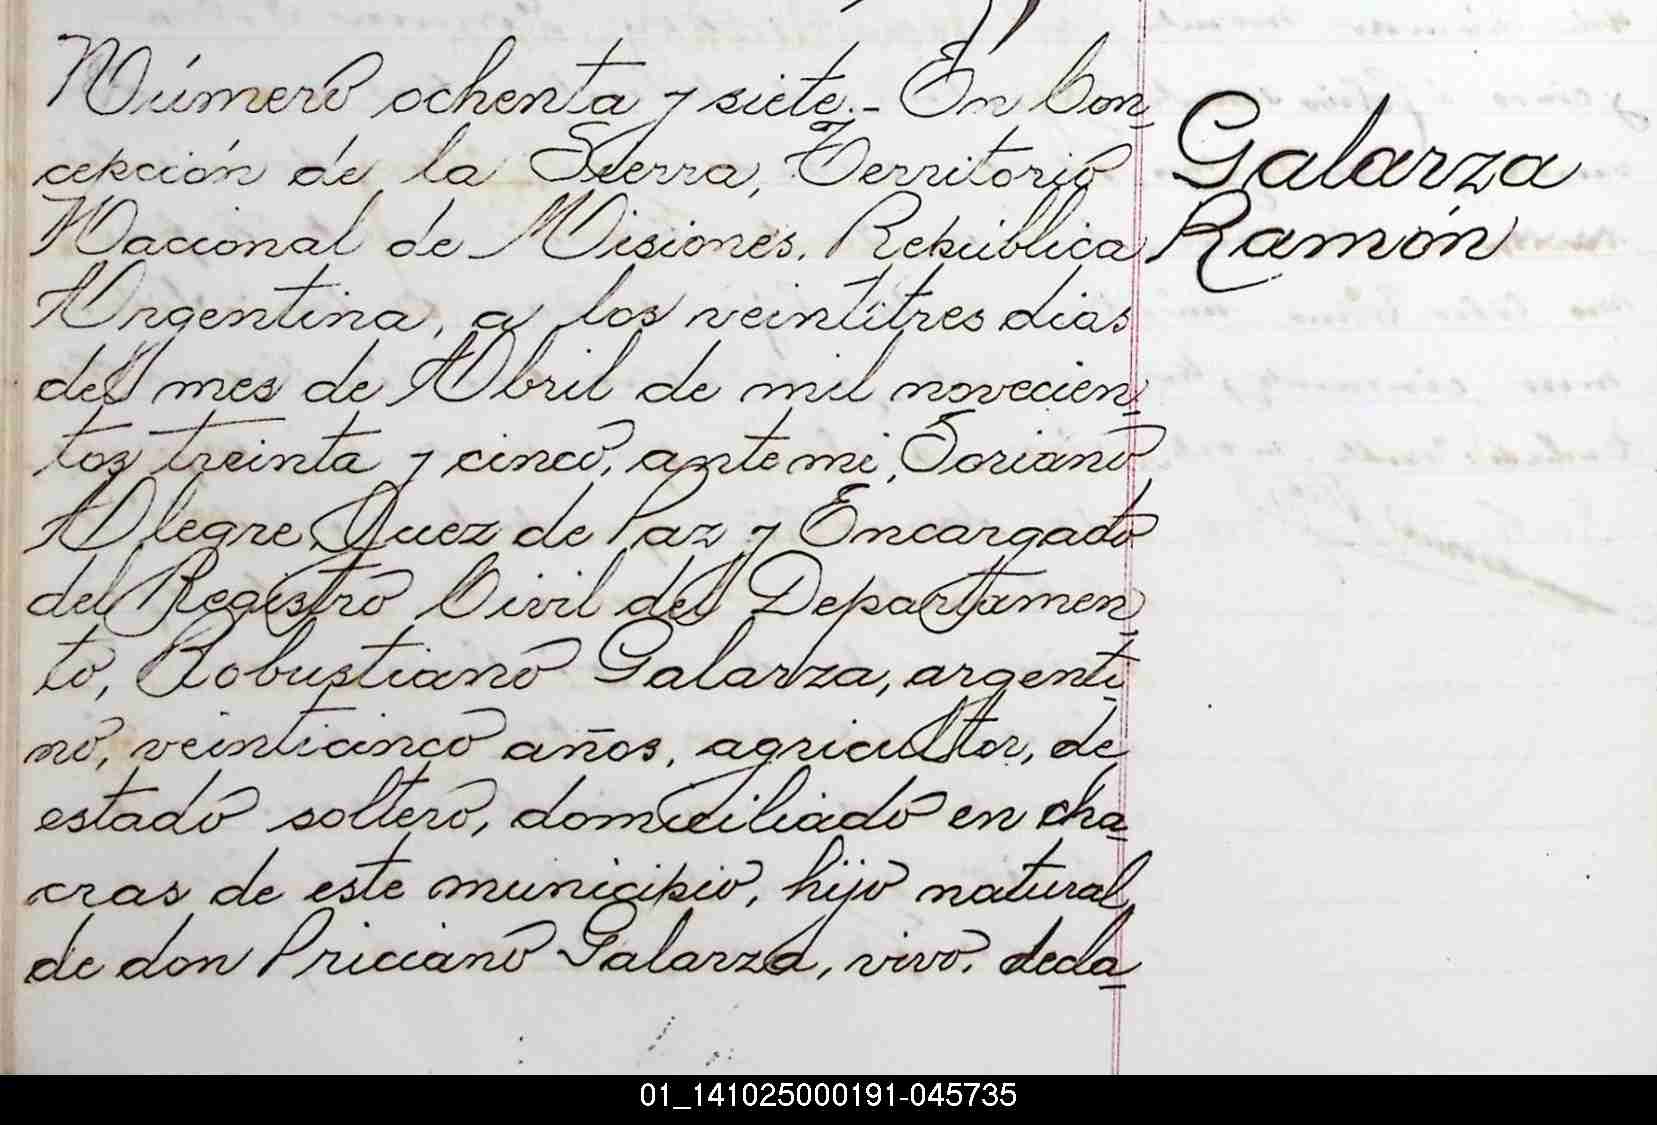 Número ochenta y siete.- En Con-
cepción de la Sierra, Territorio
Nacional de Misiones, República
Argentina, a los veintitres dias
del mes de Abril de mil novecien-
tos treinta y cinco, ante mi, Soriano
Alegre, Juez de Paz y Encargado
del Registro Civil del Departamen-
to, Robustiano Galarza, argenti-
no, veinticinco años, agricultor, de
estado soltero, domiciliado en cha-
cras de este municipio, hijo natural
de don Priciano Galarza, vivo. decla-
Galarza
Ramón
01_141025000191-045735